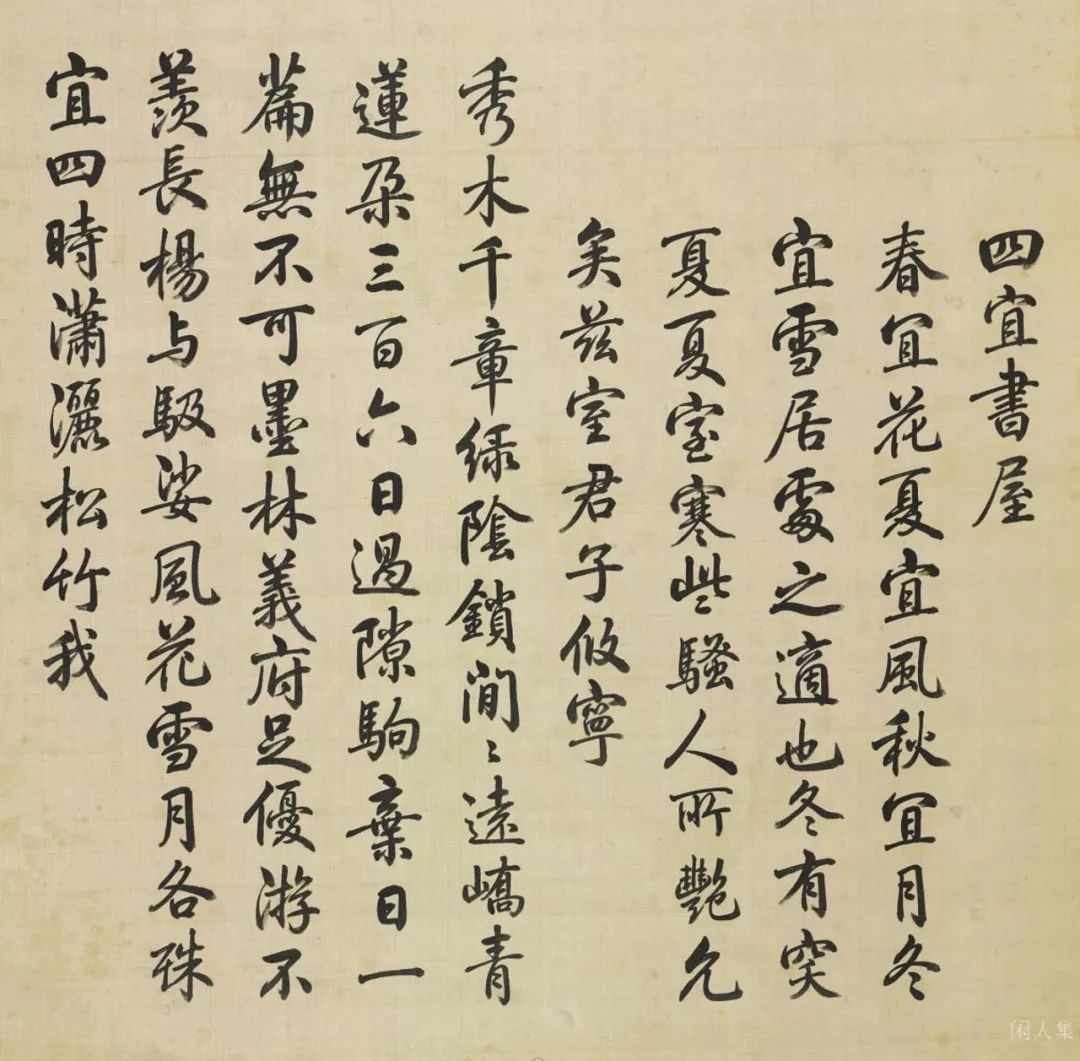 四宜書屋
春宜花夏宜風秋宜月冬
宜雪居處之適也冬有突
夏夏室寒些騷人所艷允
矣茲室君子攸寧
秀木千章綠陰鎖間〻遠嶠青
蓮朵三百六日過隙駒棄日一
篇無不可墨林義府足優游不
羨長楊与馺娑風花雪月各殊
宜四時瀟灑松竹我
闲人集